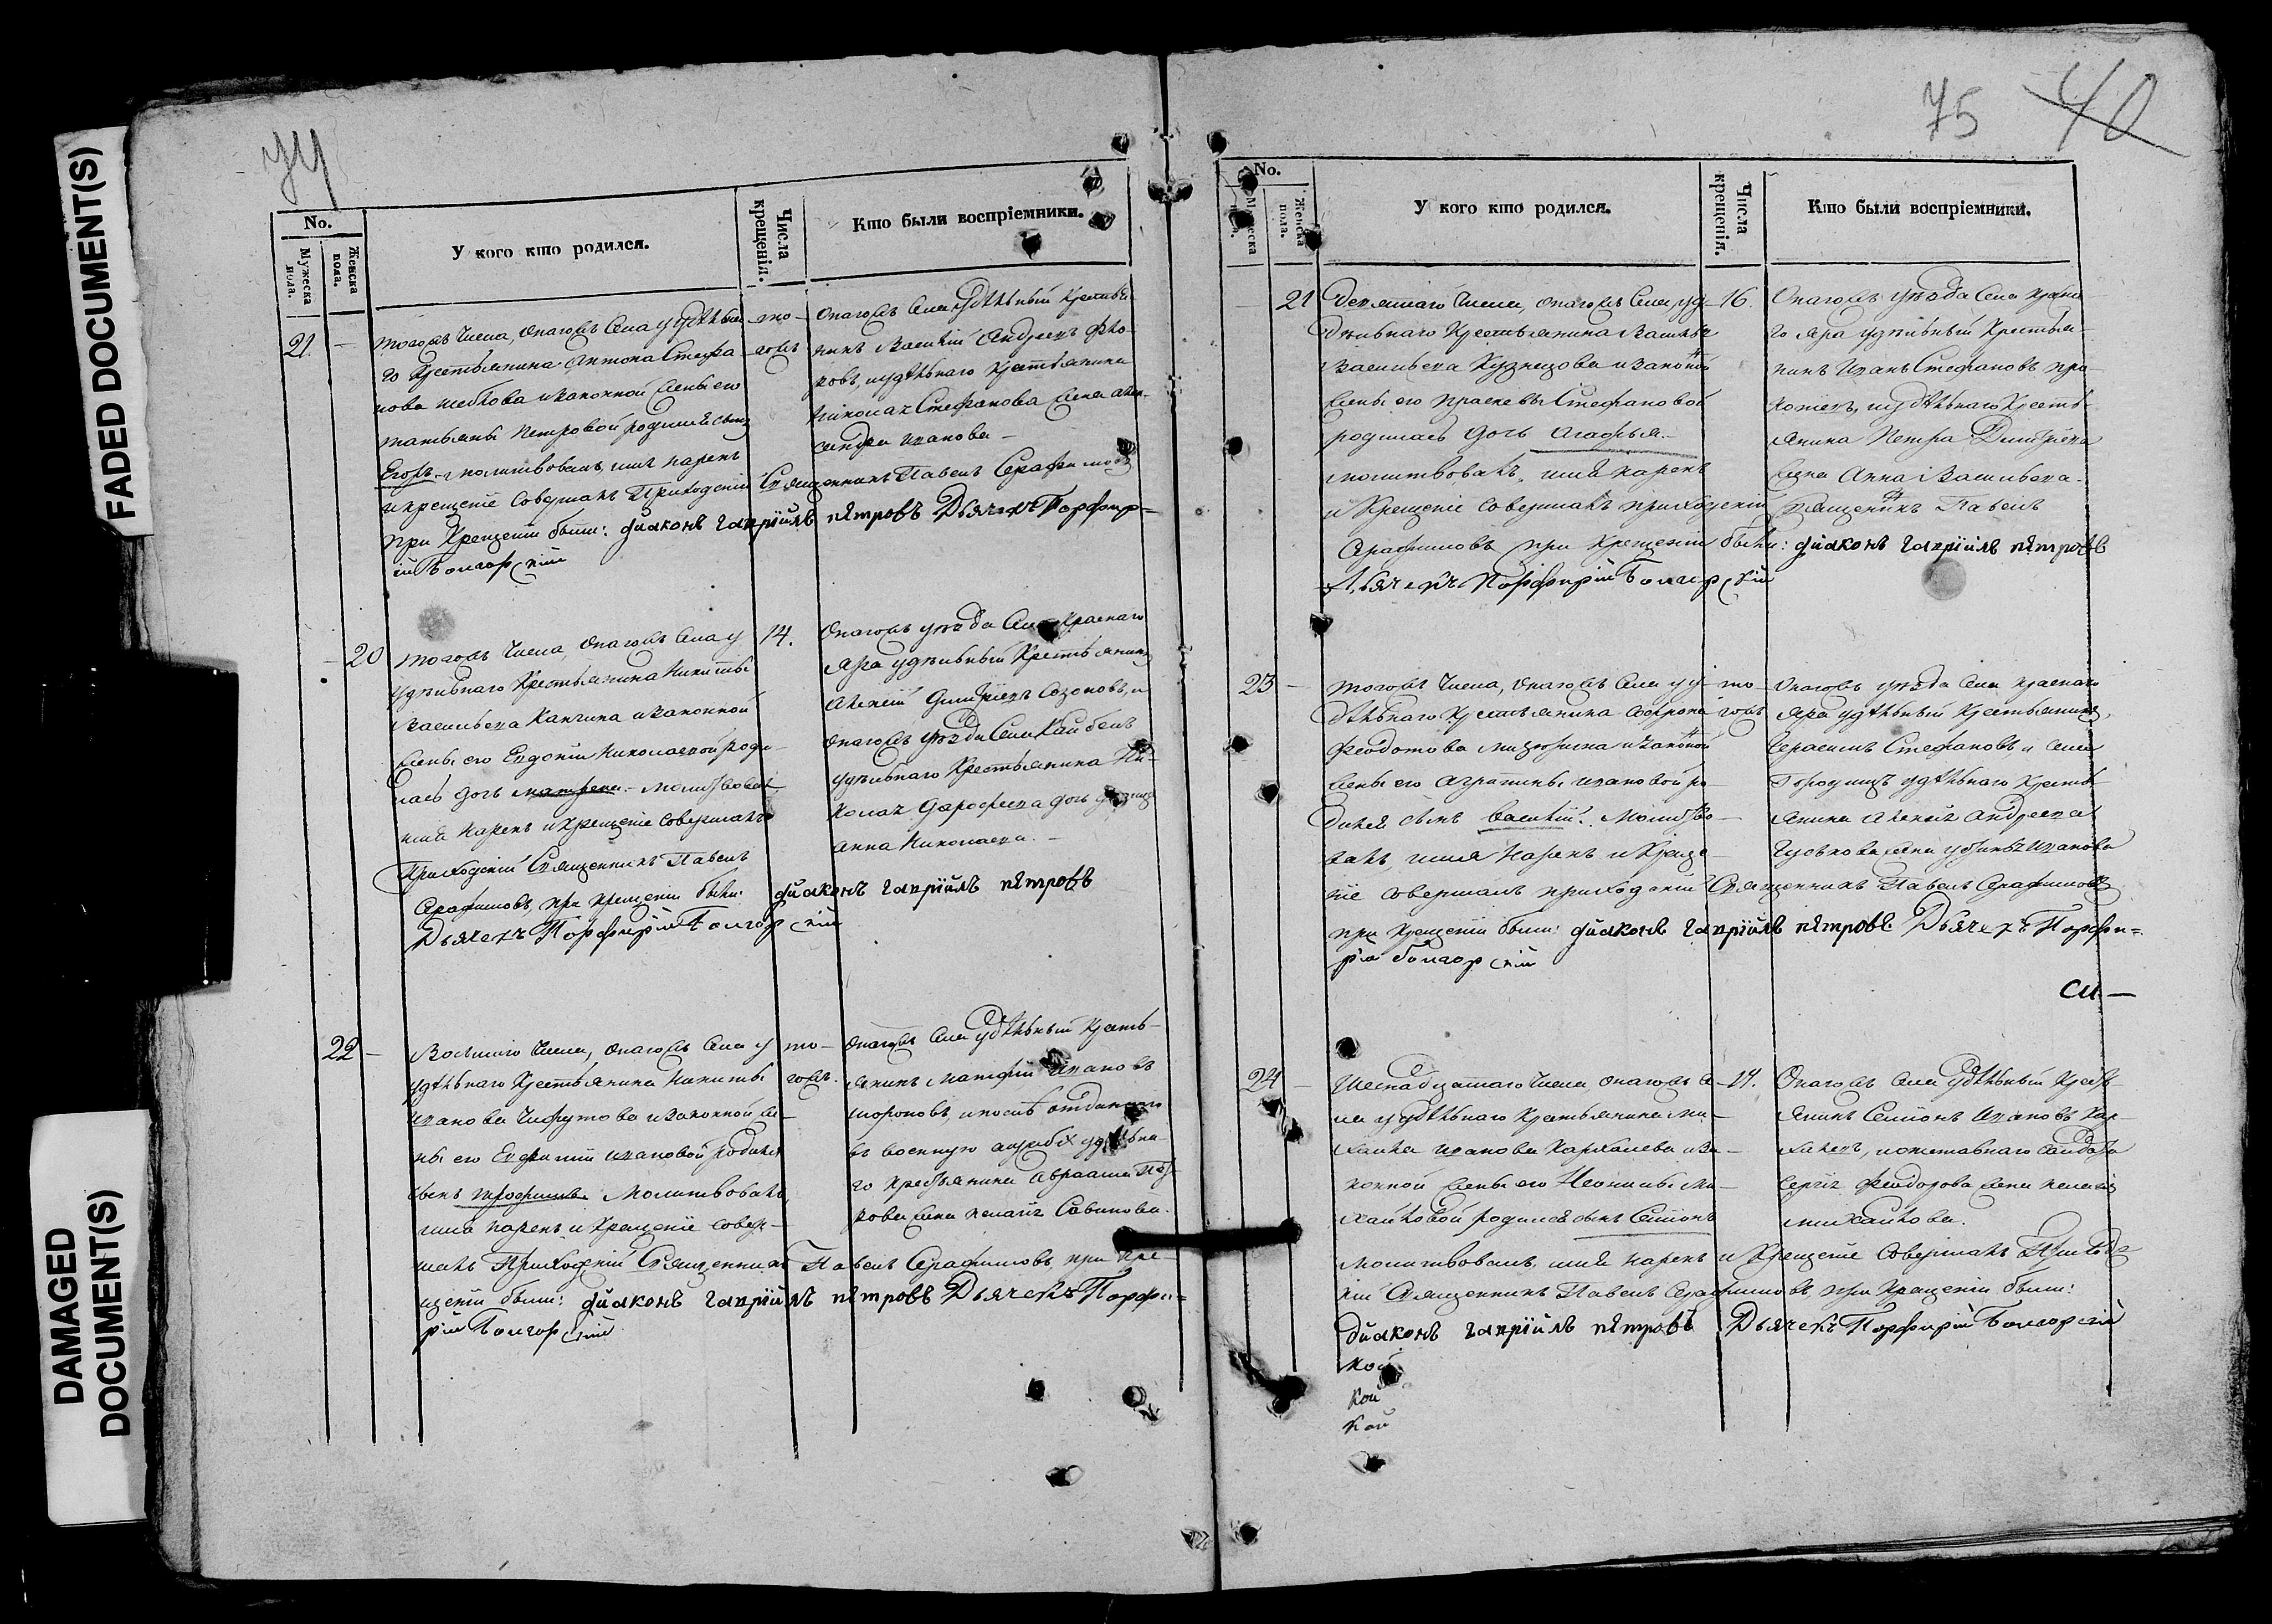 FADED DOCUMENT(S)
DAMAGED
DOCUMENT(S)
74
No.
Мужеска пола.
Женска пола.
У кого кто родился.
Числа крещенія.
Кто были воспріемники.
21.
того же числа, онагожъ села у удѣльна
го крестьянина Антона Стефа
нова Шебкова и законной жены его
Татьяны Петровой родился сынъ
Егоръ. молитвовалъ, имя нарекъ
и крещеніе совершалъ Приходскій Священникъ Павелъ Серафимовъ
при крещеніи были: діаконъ гавріилъ пѣтровъ Дьячекъ Порфир-
ій Болгорскій
то-
гожъ
Онагожъ села удѣльный крестья
нинъ Василій Андреевъ
ковъ, и удѣльнаго крестьянина
Николая Стефанова жена Алек-
сандра Иванова
20
того же числа, онагожъ села у
удѣльнаго крестьянина Никиты
Васильева Канчина и законной
жены его Евдокіи Николаевой роди-
лась дочь Матрена. Молитвовалъ
имя нарекъ и крещеніе совершалъ
Приходскій Священникъ Павелъ
Серафимовъ, при крещеніи были: діаконъ гавріилъ пѣтровъ
Дьячекъ Порфирій Болгорскій
14.
Онагожъ уѣзда села Краснаго
Яра удѣльный крестьянинъ
Алексій Димитріевъ Созоновъ, и
онагожъ уѣзда села Кайбелъ
удѣльнаго крестьянина Ни-
колая Дорофеева дочь
Анна Николаева.
22
Восьмаго числа, онагожъ села у
удѣльнаго крестьянина Никиты
Иванова Чифутова и законной же-
ны его Евфиміи Ивановой родился
сынъ Трофимъ. Молитвовалъ,
имя нарекъ и крещеніе совер-
шалъ Приходскій Священникъ Павелъ Серафимовъ, при кре-
щеніи были: діаконъ гавріилъ пѣтровъ Дьячекъ Порфи=
рій Болгорскій
то-
гожъ.
Онагожъ села удѣльный кресть-
янинъ Матфій Ивановъ
Шороновъ, и послѣ отданнаго
въ военную службу удѣльна-
го крестьянина Авраама Пет-
рова жена Пелагія Савинова.
75 40
No.
Мужеска пола.
Женска пола.
У кого кто родился.
Числа крещенія.
Кто были воспріемники.
21
Девятаго числа, онагожъ села у у-
дѣльнаго крестьянина
Васильева Кузнецова и законной
жены его Прасковьи Стефановой
родилась дочь Агафья.
молитвовалъ, имя нарекъ
и крещеніе совершалъ приходскій Священникъ Павелъ
Серафимовъ при крещеніи были: діаконъ гавріилъ пѣтровъ
Дьячекъ Порфирій Болгорскій
16.
Онагожъ уѣзда села Красна
го Яра удѣльный крестья-
нинъ Иванъ Стефановъ Про
котеевъ, и удѣльнаго кресть-
янина Петра Димитріева
жена Анна Васильева.
23
того же числа, онагожъ села у у-
дѣльнаго крестьянина Софрона
Феодотова Мизюрина и законной
жены его Агрипины Ивановой ро-
дился сынъ Василій. Молитво-
валъ, имя нарекъ и креще-
ніе совершалъ приходскій Священникъ Павелъ Серафимовъ
при крещеніи были: діаконъ гавріилъ пѣтровъ Дьячекъ Порфи=
рій болгорскій
то-
гожъ
Онагожъ уѣзда села Краснаго
Яра удѣльный крестьянинъ,
Герасимъ Стефановъ, и села
Городищъ удѣльнаго кресть-
янина Алексѣя Андреева
Гуськова жена Устинья Иванова
си-
24
Шеснадцатаго числа онагожъ се-
ла у удѣльнаго крестьянина Ми-
хаила Иванова Кархалева и за-
конной жены его Неонилы Ми-
хайловой родился сынъ Семіонъ
Молитвовалъ, имя нарекъ и крещеніе совершалъ Приходс
кій Священникъ Павелъ Серафимовъ, при крещеніи были:
діаконъ гавріилъ пѣтровъ Дьячекъ Порфирій Болгорскій
17.
Онагожъ села удѣльный крест
янинъ Семіонъ Ивановъ Кар-
халевъ, и отставнаго солдата
Сергія Феодорова жена Пелагія
Михайлова.
кой
кой
кой